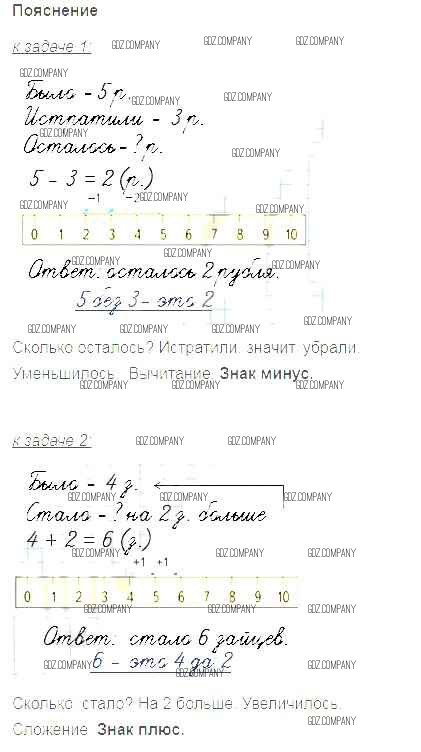 Пояснение
к задаче 1:
Было – 5 р.
Истратили – 3 р.
Осталось – ? р.
5 – 3 = 2 (р.)
–1 –2
0 1 2 3 4 5 6 7 8 9 10
Ответ: осталось 2 рубля.
5 без 3 – это 2
Сколько осталось? Истратили, значит, убрали.
Уменьшилось. Вычитание. Знак минус.
к задаче 2:
Было – 4 з.
Стало – ? на 2 з. больше
4 + 2 = 6 (з.)
+1 +1
0 1 2 3 4 5 6 7 8 9 10
Ответ: стало 6 зайцев.
6 – это 4 да 2
Сколько стало? На 2 больше. Увеличилось.
Сложение. Знак плюс.
GDZ.COMPANY